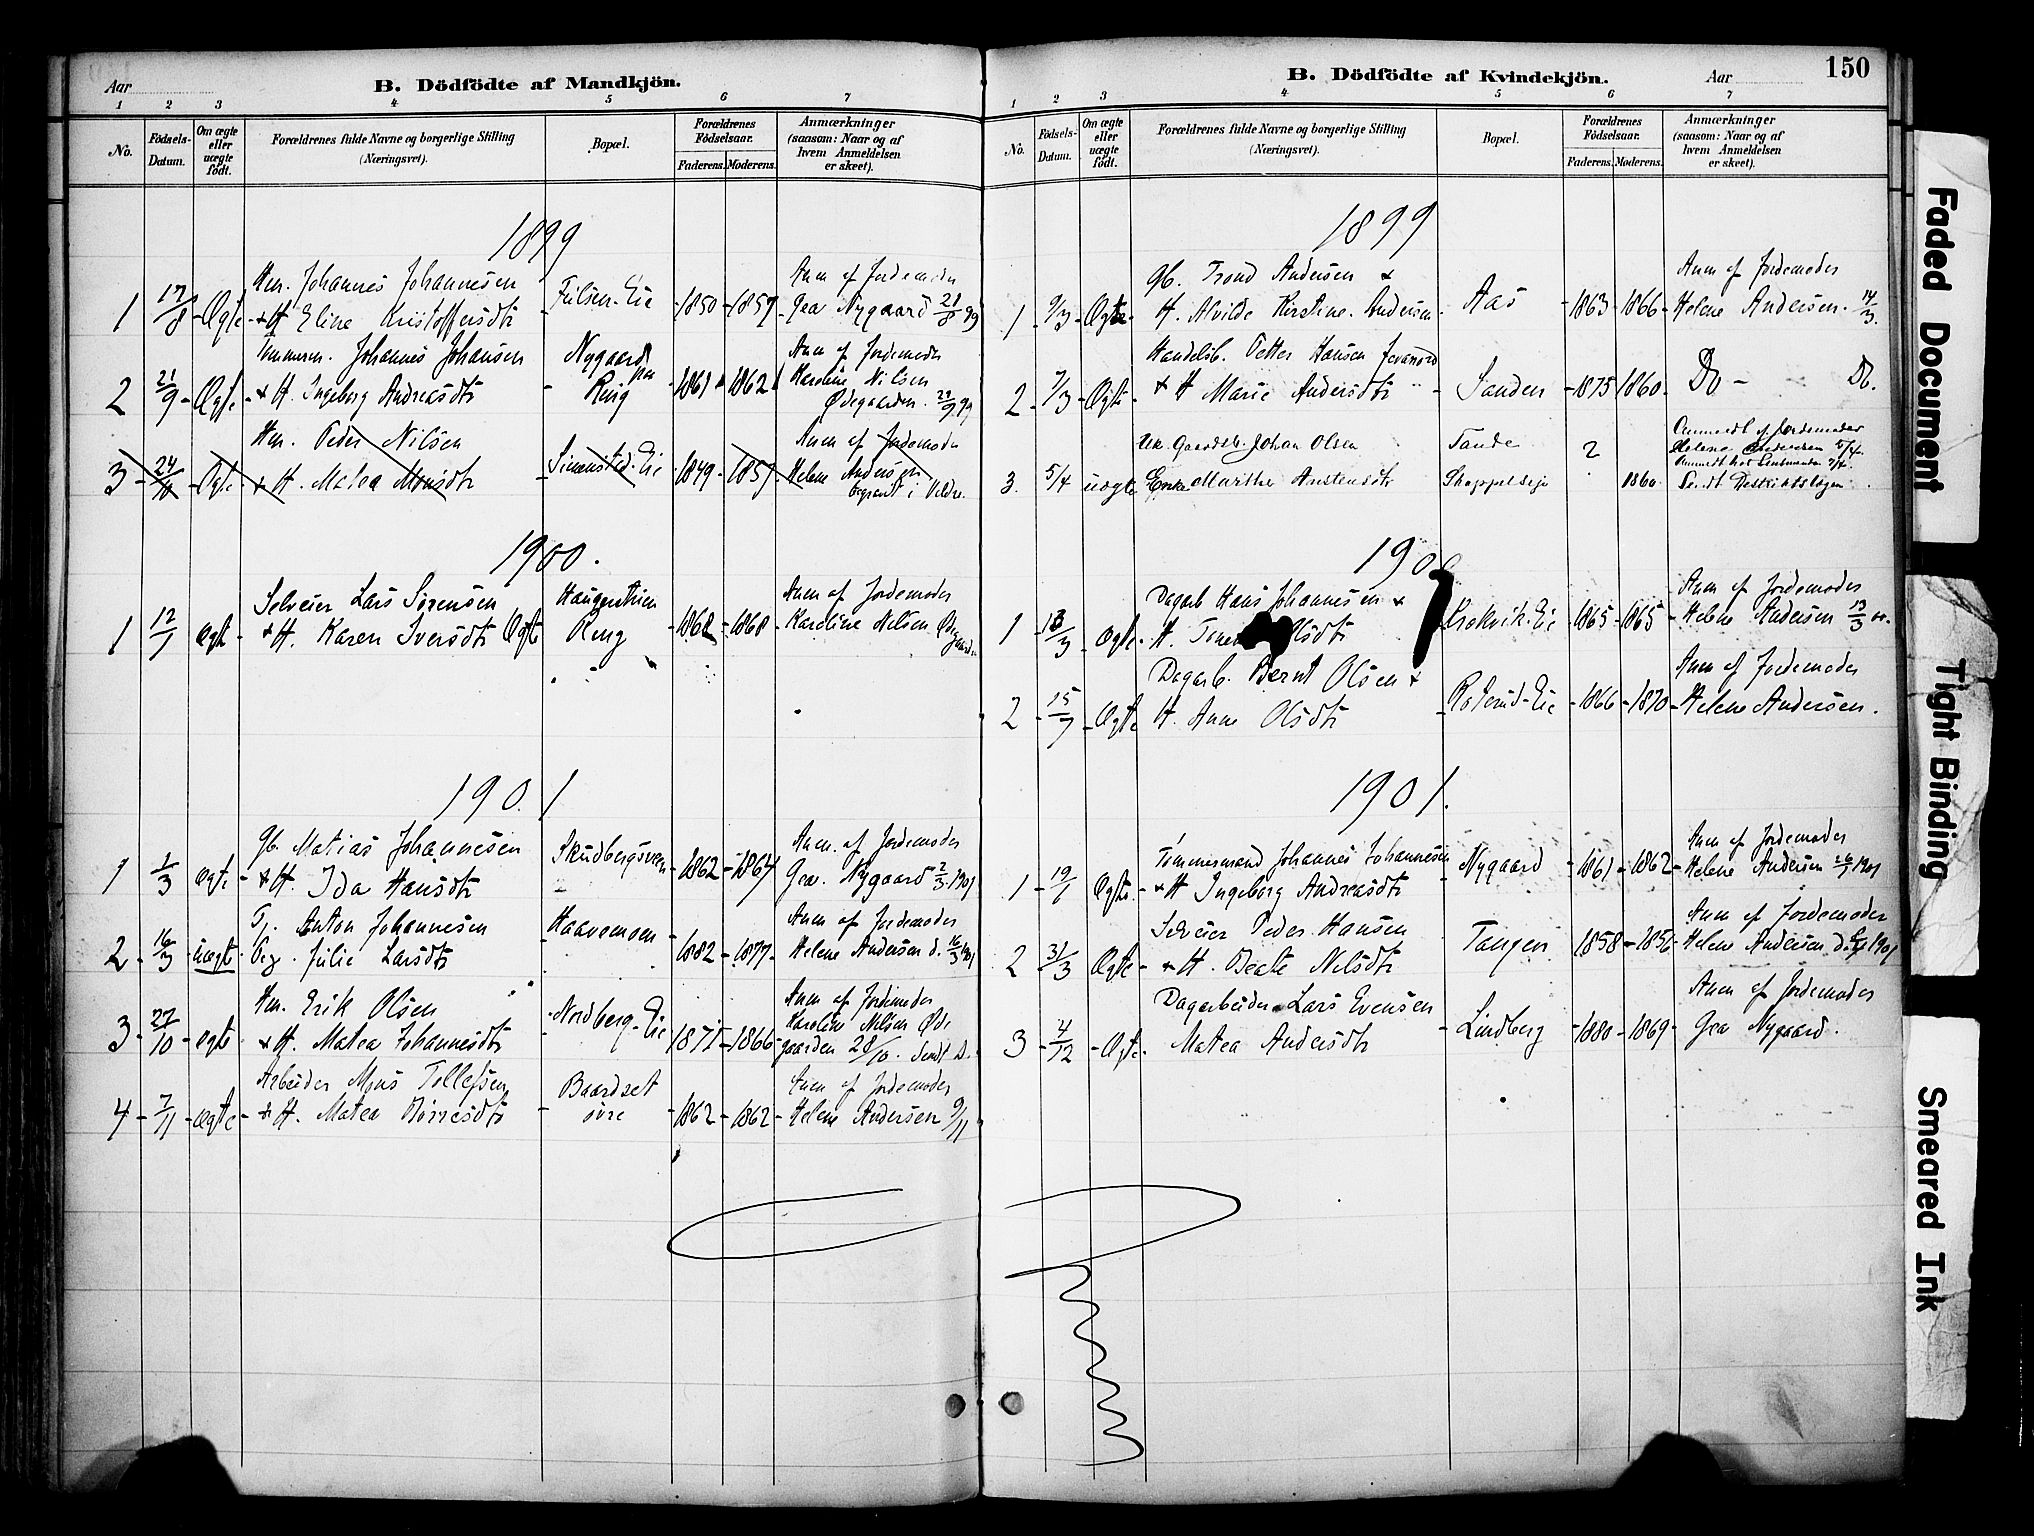 Aar
B. Dödfödte af Mandkjön.
1 2 3 4 5 6 7
No.
Födsels-
Datum.
Om ægte
eller
uægte
födt.
Forældrenes fulde Navne og borgerlige Stilling
(Næringsvei).
Bopæl.
Forældrenes
Födselsaar.
Faderens. Moderens.
Anmærkninger
(saasom: Naar og af
hvem Anmeldelsen
er skeet).
1899
Hm. Johannes Johannesen
1 17/8 Ægte + H Eline Kristoffersdtr Eie 1850 1857
Anm af Jordemoder
Gea Nygaard 21/8 99
Tømmerm. Johannes Johansen
2 21/9 Ægte + H. Ingeborg Andreasdtr
Nygaard
Ring 1861 1862
Anm af Jordemoder
Karoline Nilsen
Ødegaarden. 9/99
Hm. Peder Nilsen
3 24/10 Ægte + H. Matea Monsdtr Simenstad Eie 1849 1857
Anm af Jordemoder
Helene Andersen
begravet i Veldre.
1900.
Selveier Lars Sørensen
1 12/1 Ægte + H. Karen Iversdtr Ægte
Ring 1862 1868
Anm af Jordemoder
Karoline Nilsen Ødegaarden
1901
Gb. Matias Johannesen
1 2/3 ægte + H. Ida Hansdtr Skudbergsveen 1862 1864
Anm. af Jordemoder
Gea. Nygaard 2/3 1901
Tj. Anton Johannesen
2 16/3 uægte Peg. Julie Larsdtr Haavemoen 1882 1877
Anm af Jordemoder
Helene Andersen d. 16/3 1901
Hm. Erik Olsen
3 27/10 ægte + H. Matea Johannesdtr Nordberg-Eie 1871 1866
Anm af Jordemoder
Karoline Nilsen Øde
gaarden 28/10. Sendt D.
Arbeider Mons Tollefsen
4 7/11 ægte + H. Matea Børresdtr
Baardset
øvre 1862 1862
Anm af Jordemoder
Helene Andersen 9/11
B. Dödfödte af Kvindekjön.
Aar
150
1 2 3 4 5 6 7
No.
Födsels-
Datum.
Om ægte
eller
uægte
födt.
Forældrenes fulde Navne og borgerlige Stilling
(Næringsvei).
Bopæl.
Forældrenes
Födselsaar.
Faderens. Moderens.
Anmærkninger
(saasom: Naar og af
hvem Anmeldelsen
er skeet).
1899
Gb. Trond Andersen +
1 9/3 Ægte H. Alvilde Kirstine Andersen Aas 1863 1866
Anm af Jordemoder
Helene Andersen. 14/3.
Handelsb. Petter Hansen
2 7/3 Ægte + H Marie Andersdtr Sanden 1875 1860 Do Do.
Uk. Gaardsb. Johan Olsen Tande
3 5/4 uægte Enke Marthe Austensdtr 1860
Anmeldt af Jordemoder
Helene Andersen 5/4.
Anmeldt hos Lensmanden 7/4.
Sendt Distriktslægen
1900
Dagarb Hans Johannesen +
1 13/3 Ægte H. Olsdtr Krokvik-Eie 1865 1865
Anm af Jordemoder
Helene Andersen 13/3 00.
Dagarb. Bernt Olsen +
2 15/7 Ægte H. Anne Olsdtr Roterud-Eie 1866 1870
Anm af Jordemoder
Helene Andersen.
1901.
Tømmermand Johannes Johannesen
1 19/1 Ægte + H Ingeborg Andreasdtr Nygaard 1861 1862
Anm af Jordemoder
Helene Andersen 26/1 1901
Selveier Peder Hansen
2 31/3 Ægte + H. Beate Nilsdtr Tangen 1858 1856
Anm af Jordemoder
Helene Andersen 1901
Dagarbeider Lars Evensen
3 4/12 Ægte Matea Andersdtr Lindberg 1880 1869
Anm af Jordemoder
Gea Nygaard.
Faded Document
Tight Binding
Smeared Ink